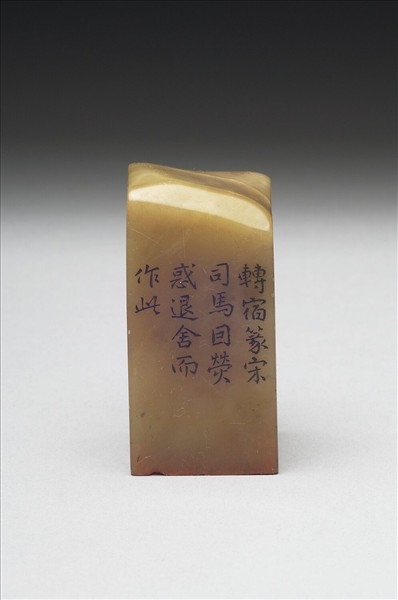 轉宿篆宋
司馬因熒
惑退舍而
作此